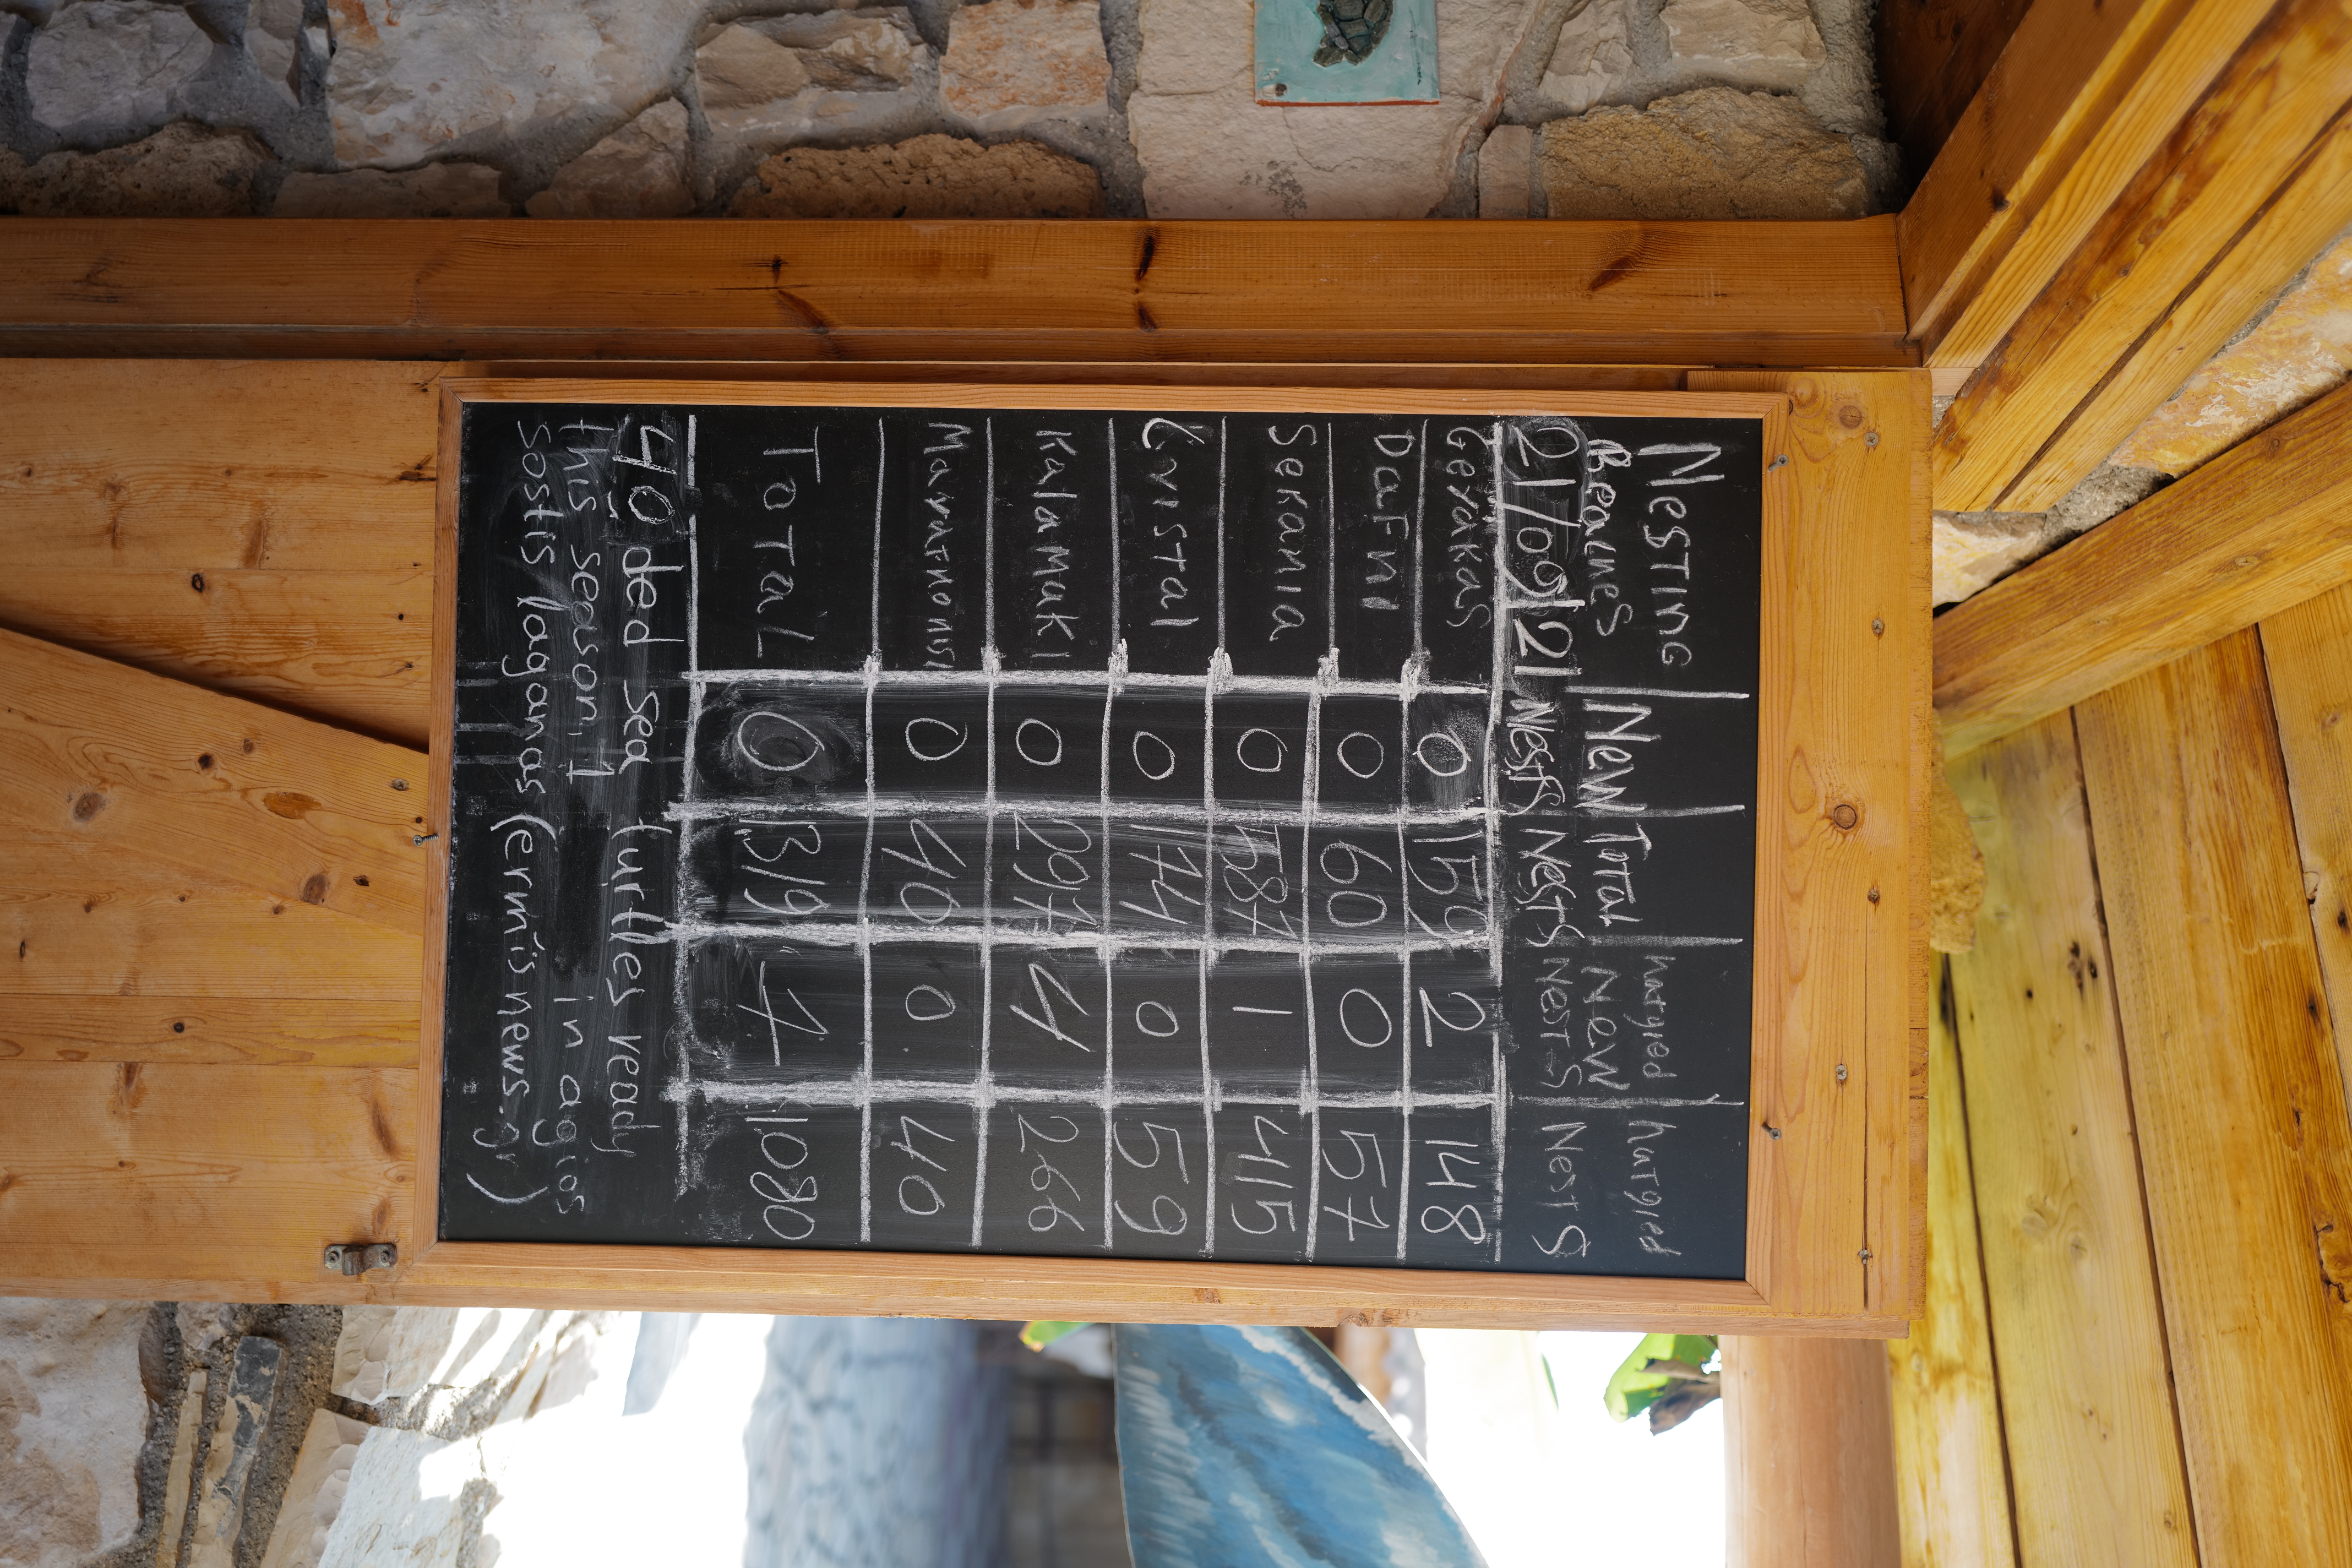 Nesting hatched hatched
Beaches New Total New
21/09/21 Nests Nests Nests Nests
Gerakas 0 159 2 148
Dafni 0 60 0 57
Sekania 0 587 1 415
Cristal 0 74 0 59
Kalamaki 0 297 4 266
Marathonisi 0 40 0 40
Total 0 1319 7 1080
40 ded sea turtles ready
this season, 1 in agios
sostis laganas (ermisnews.gr)